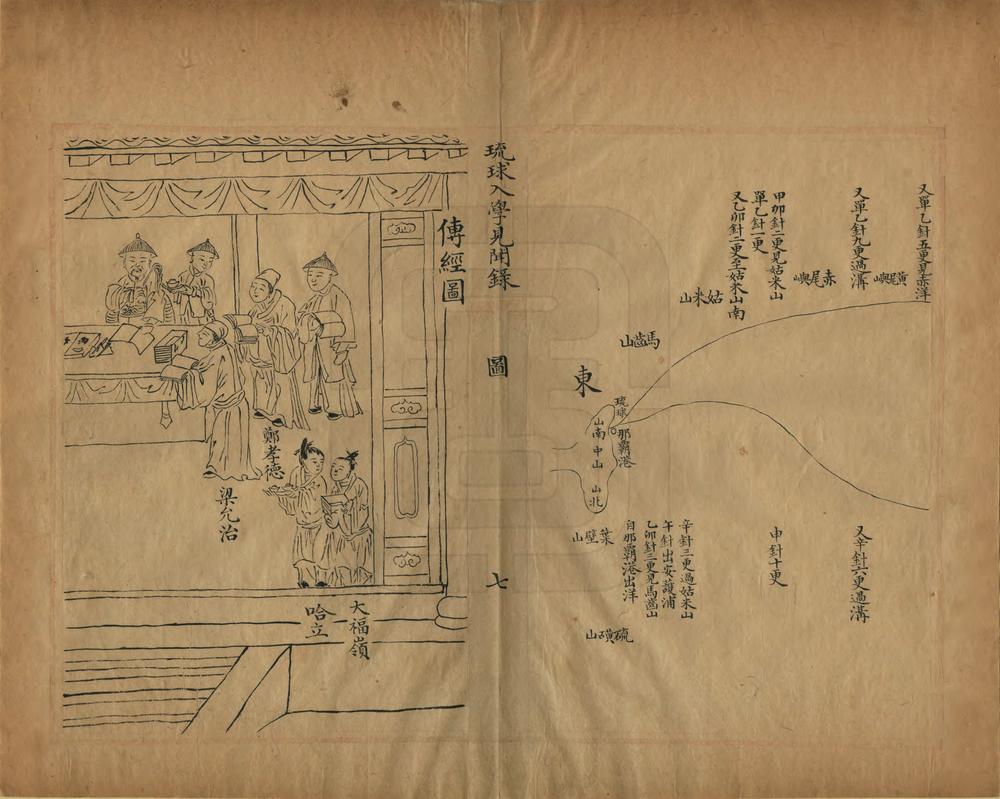 又單乙針五更見赤洋
黃尾嶼
又單乙針九更過溝
赤尾嶼
甲卯針二更見姑米山
單乙針一更
又乙卯針二更至姑米山南
姑米山
馬齒山
東
琉球
那霸港
山南
中山
山北
又辛針六更過溝
申針十更
辛針三更過姑米山
午針出安護浦
乙卯針三更見馬齒山
自那霸港出洋
葉壁山
硫磺山
琉球入學見聞錄
圖
七
傳經圖
鄭孝德
梁允治
大福嶺
哈立